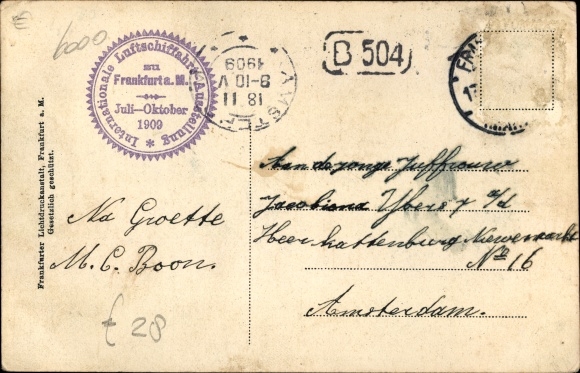 6000
Internationale Luftschiffahrt-Ausstellung
zu
Frankfurt a. M.
Juli-Oktober
1909
AMSTER
18 11
8-10 V
1909
B 504
FRA
Frankfurter Lichtdruckanstalt, Frankfurt a. M.
Gesetzlich geschützt.
Na Groette
M. C. Boon.
€ 28
Aan de jonge Juffrouw
Jacobiena
Heer Kattenburg Nieuwemarkt
No 16
Amsterdam.